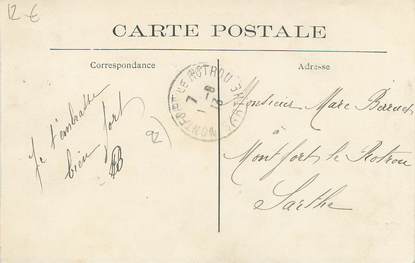 12 €
CARTE POSTALE
Correspondance
Adresse
Je t'embrasse
bien fort
B
92
MONTFORT LE ROTROU SARTHE
7 - 8
Monsieur Marc
à
Montfort le Rotrou
Sarthe